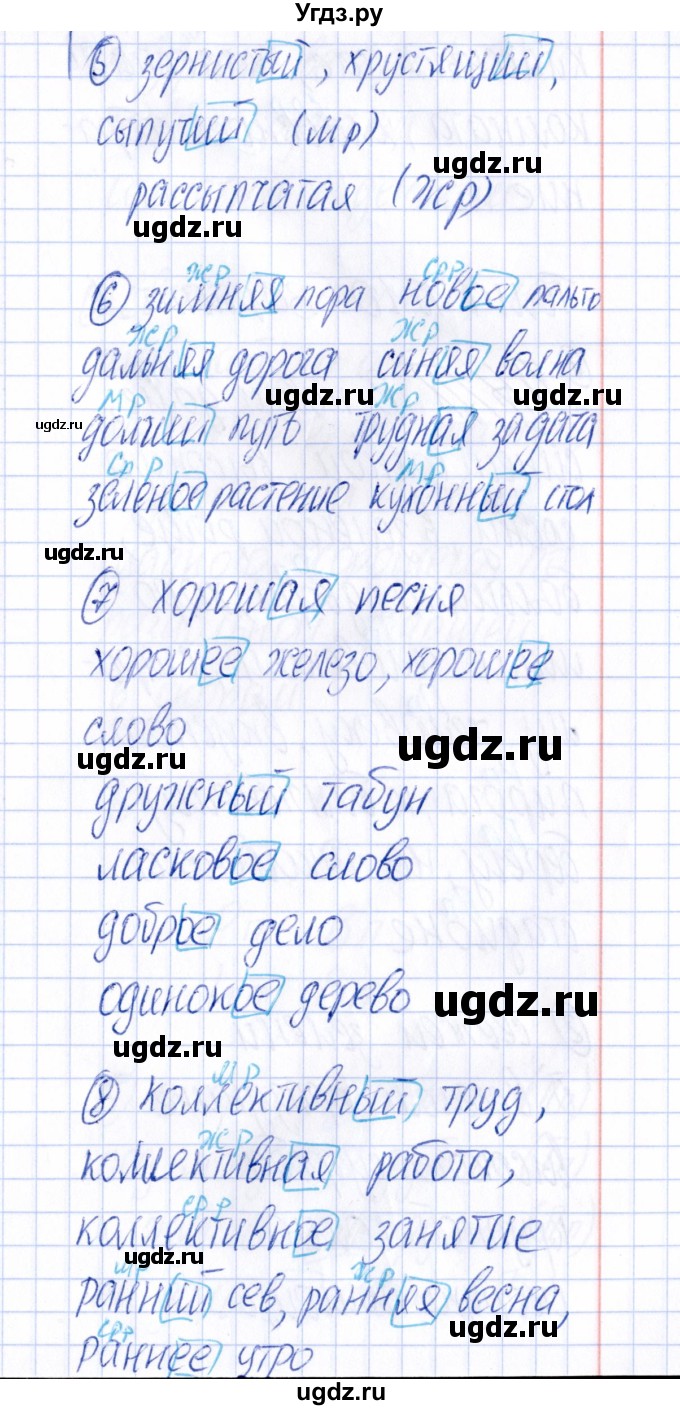 Угдз.ру
5 зернистый, хрустящий,
сыпучий (мр)
ugdz.ru
рассыпчатая (жр)
ugdz.ru
жр срр
6 зимняя пора новое пальто
жр жр
дальняя дорога синяя волна
ugdz.ru ugdz.ru
мр жр
ugdz.ru
долгий путь трудная задача
ср р мр
зеленое растение кухонный стол
ugdz.ru
7 хорошая песня
хорошее железо, хорошее
слово
ugdz.ru
ugdz.ru
дружный табун
ласковое слово
доброе дело
одинокое дерево
ugdz.ru
ugdz.ru
мр
8 коллективный труд,
жр
коллективная работа,
ср р
коллективное занятие
ugdz.ru
мр жр
ранний сев, ранняя весна,
ugdz.ru
срр
раннее утро
ugdz.ru